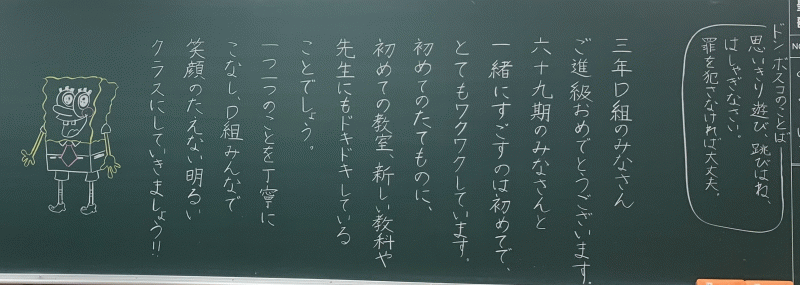 ドンボスコのことば
思いきり遊び、跳びはね、
はしゃぎなさい。
罪を犯さなければ大丈夫。
三年D組のみなさん
ご進級おめでとうございます。
六十九期のみなさんと
一緒にすごすのは初めてで、
とてもワクワクしています。
初めてのたてものに、
初めての教室、新しい教科や
先生にもドキドキしている
ことでしょう。
一つ一つのことを丁寧に
こなし、D組みんなで
笑顔のたえない明るい
クラスにしていきましょう!!